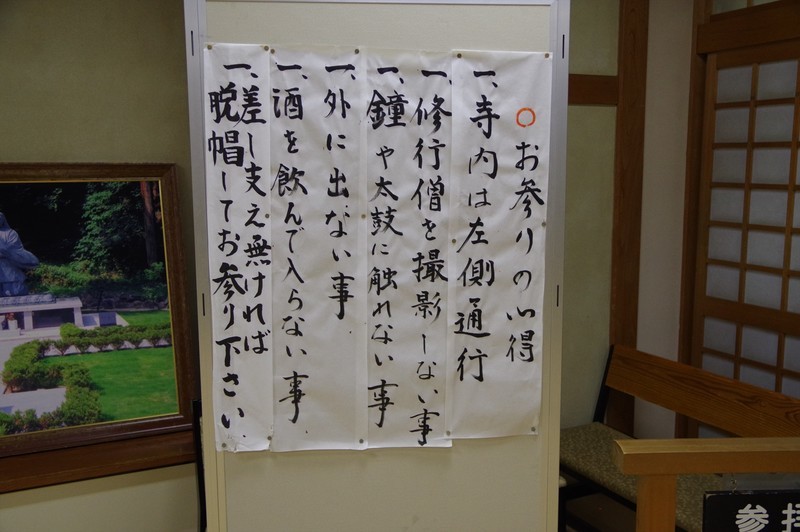 ○お参りの心得
一、寺内は左側通行
一、修行僧を撮影しない事
一、鐘や太鼓に触れない事
一、外に出ない事
一、酒を飲んで入らない事
一、差し支え無ければ
脱帽してお参り下さい
参拝